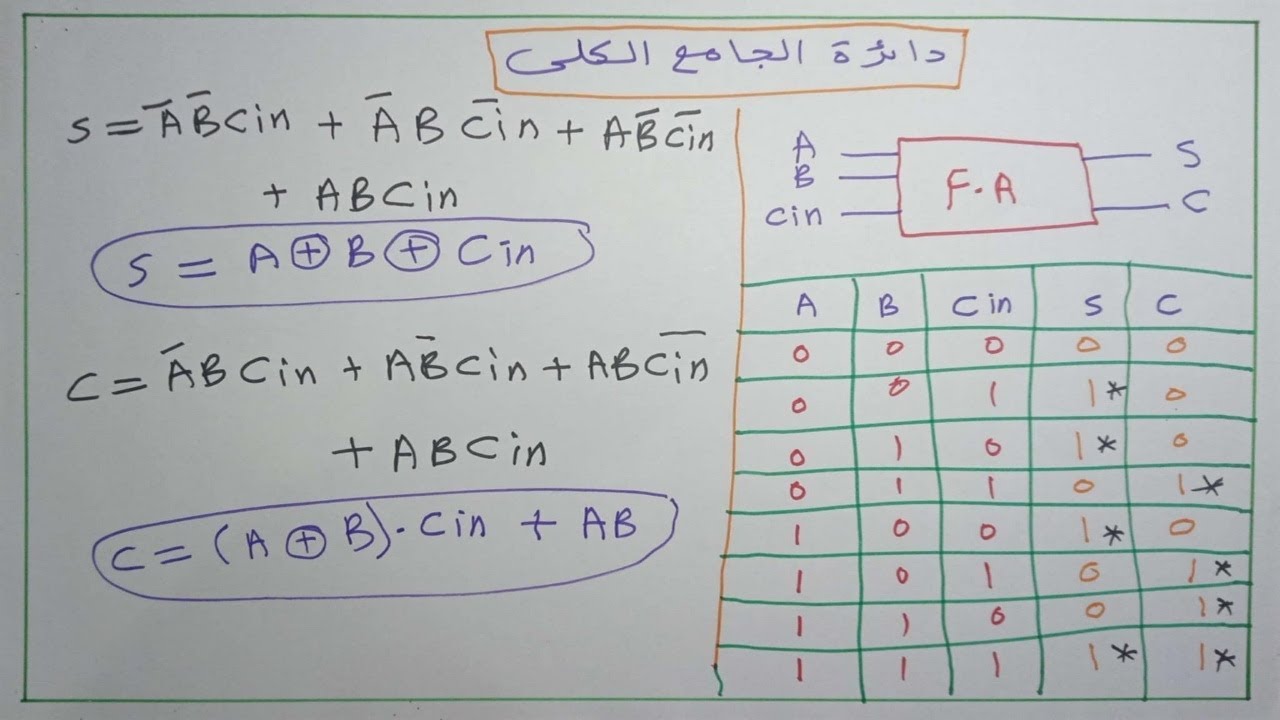 دائرة الجامع الكلى
S = A̅ B̅ Cin + A̅ B C̅i̅n̅ + A B̅ C̅i̅n̅
+ A B Cin
S = A ⊕ B ⊕ Cin
C = A̅ B Cin + A B̅ Cin + A B C̅i̅n̅
+ A B Cin
C = (A ⊕ B) · Cin + AB
A
B
Cin
F.A
S
C
A B Cin S C
0 0 0 0 0
0 0 1 1* 0
0 1 0 1* 0
0 1 1 0 1*
1 0 0 1* 0
1 0 1 0 1*
1 1 0 0 1*
1 1 1 1* 1*